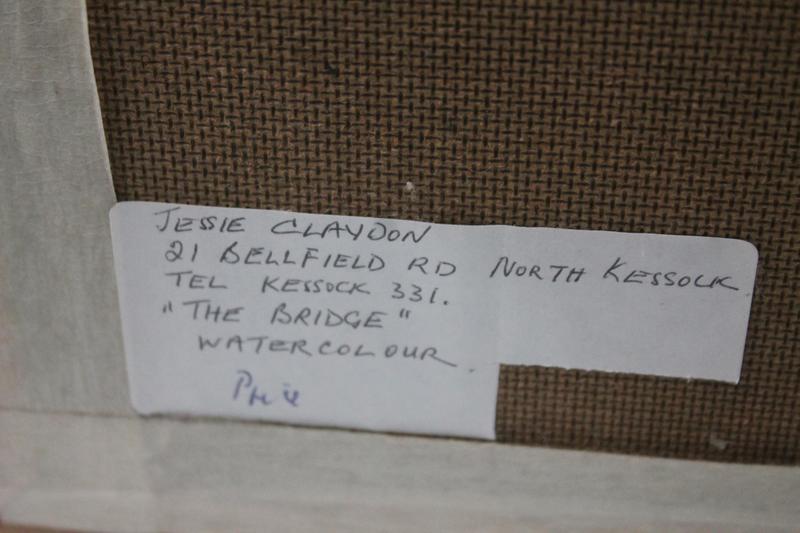 JESSIE CLAYDON
21 BELLFIELD RD NORTH KESSOCK
TEL KESSOCK 331.
"THE BRIDGE"
WATERCOLOUR.